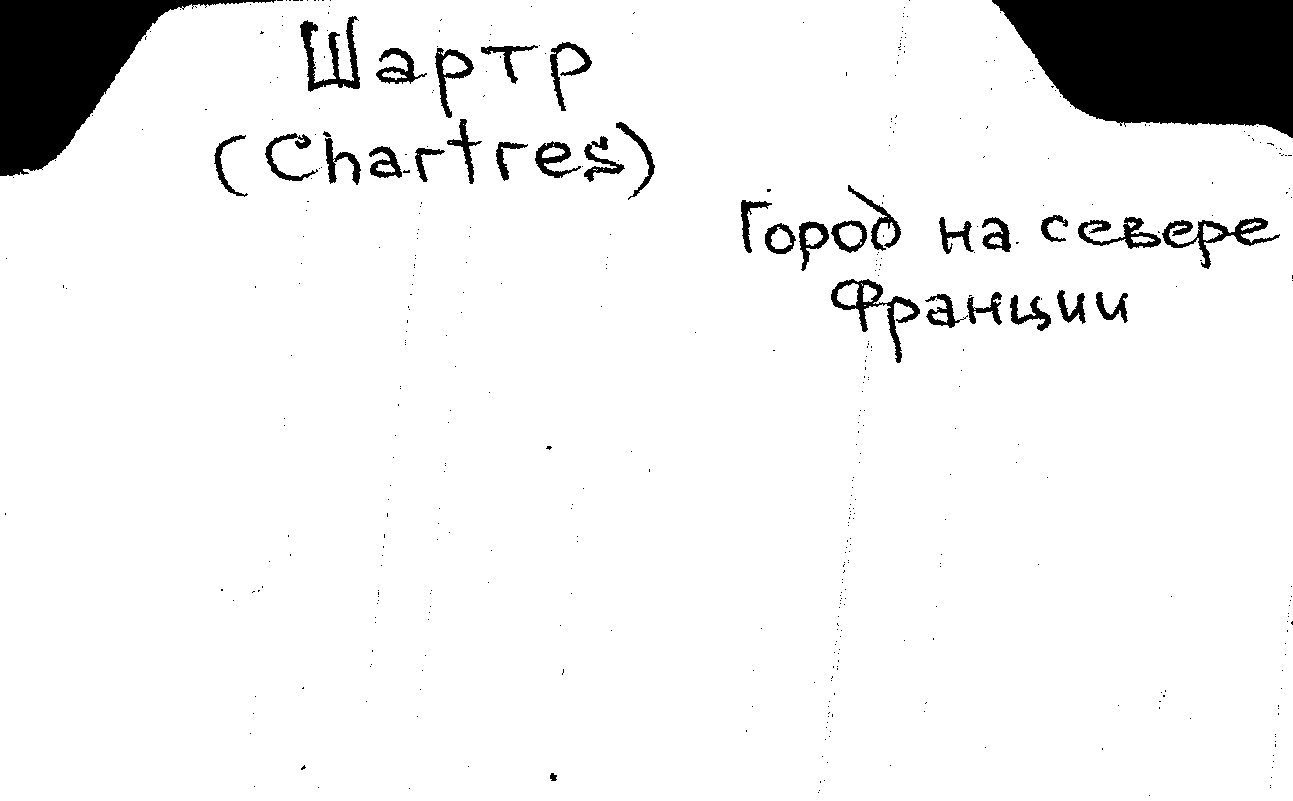 Шартр
(Chartres)
Город на севере
Франции